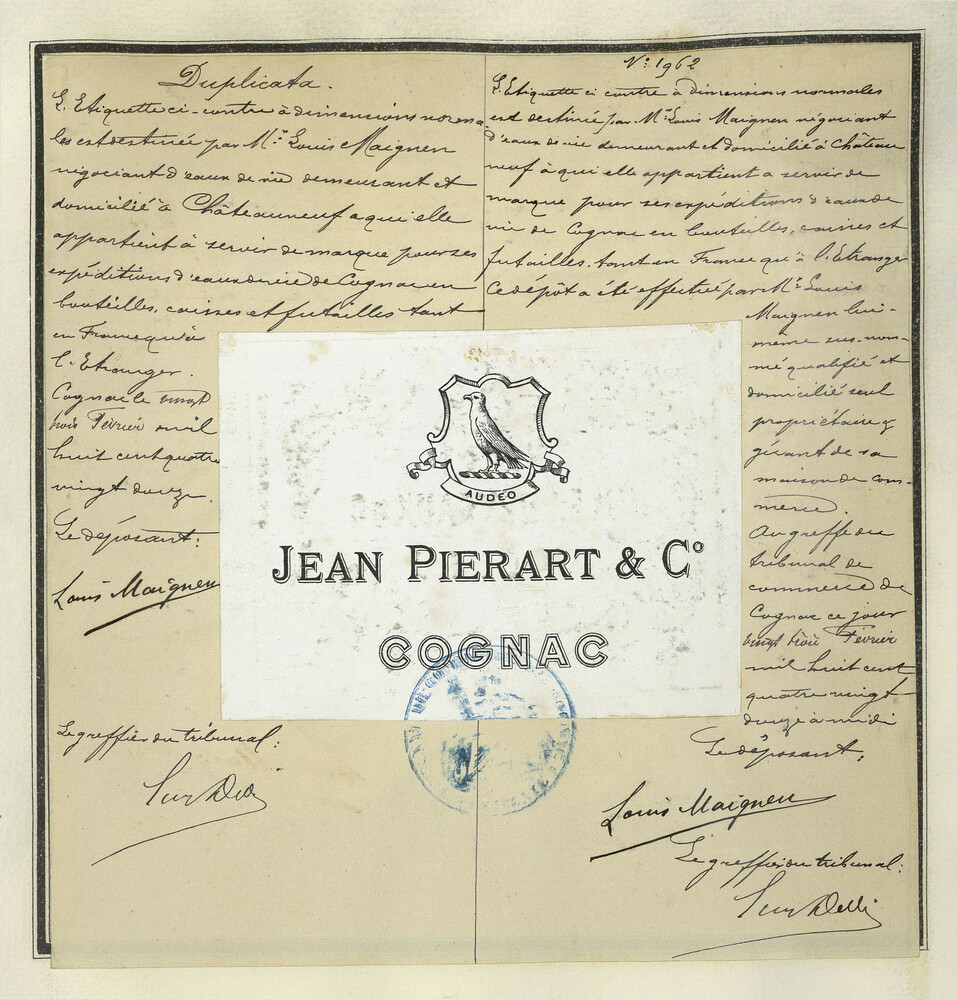 Duplicata.
L'Etiquette ci-contre à dimensions norma
les est destinée par Mr. Louis Maignen
négociant d'eaux de vie demeurant et
domicilié à Châteauneuf a qui elle
appartient à servir de marque pour ses
expéditions d'eaux de vie de Cognac en
bouteilles, caisses et futailles tant
en France qu'à
l'Etranger.
Cognac le vingt
trois Février mil
huit cent quatre
vingt douze.
Le déposant:
Louis Maignen
Le greffier du tribunal:
No. 1962
L'Etiquette ci contre à dimensions normales
est destinée par Mr. Louis Maignen négociant
d'eaux de vie demeurant et domicilié à Château
neuf à qui elle appartient a servir de
marque pour ses expéditions d'eaux de
vie de Cognac en bouteilles, caisses et
futailles, tant en France qu'à l'Etranger
Ce dépôt a été effectué par Mr. Louis
Maignen lui-
même sus-nom-
mé qualifié et
domicilié seul
propriétaire &
gérant de sa
maison de com-
merce.
Au greffe du
tribunal de
commerce de
Cognac ce jour
vingt trois Février
mil huit cent
quatre vingt
douze à midi
Le déposant,
Louis Maignen
Le greffier du tribunal:
AUDEO
JEAN PIERART & Co
COGNAC